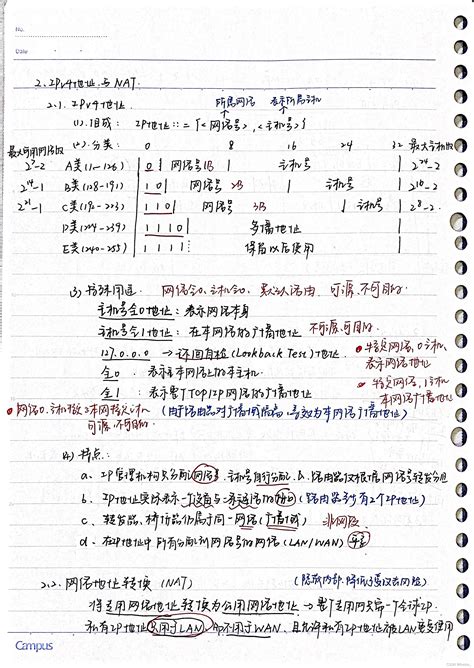 No.
Date
2. IPv4地址与NAT
2.1. IPv4地址
所属网络 表示所属主机
(1). 组成: IP地址::={<网络号>,<主机号>}
最大可用网络数 (2). 分类: 0 8 16 24 32 最大主机数
2^7-2 A类(1~126) 0 网络号1B 主机号 2^24-2
2^14-1 B类(128-191) 10 网络号 2B 主机号 2^16-2
2^21-1 C类(192-223) 110 网络号 3B 主机号 2^8-2
D类(224-239) 1110 多播地址
E类(240-255) 1111 保留以后使用
(3) 特殊用途 网络全0、主机全0: 默认路由 可源、不可目的
主机号全0地址: 表示网络本身
主机号全1地址: 在本网络的广播地址 不可源、可目的
127.0.0.0 → 环回自检(Lookback Test)地址
特定网络,0主机
表示网络地址
全0: 表示本网络上的本主机
特定网络,1主机
本网络广播地址
全1: 表示整个TCP/IP网络的广播地址
网络0、主机
可源、不可目的
(由于路由器对广播域隔离,等效为本网络广播地址)
(4) 特点:
a. IP管理机构只分配网络号、主机号自行分配 & 路由器仅根据网络号转发分组
b. IP地址实际表示一个设备与一条链路的接口 (路由器到少有2个IP地址)
c. 转发器、桥接器仍属于同一网络(广播域) 非网段
d. 在IP地址中所有分配到网络号的网络(LAN/WAN) 平等
2.2. 网络地址转换 (NAT) (隐藏内部,降低
将专用网络地址转换为公用网络地址 → 整个专用网只需一个全球IP
私有IP地址只用于LAN、不用于WAN、且允许私有IP地址被LAN重复使用
Campus